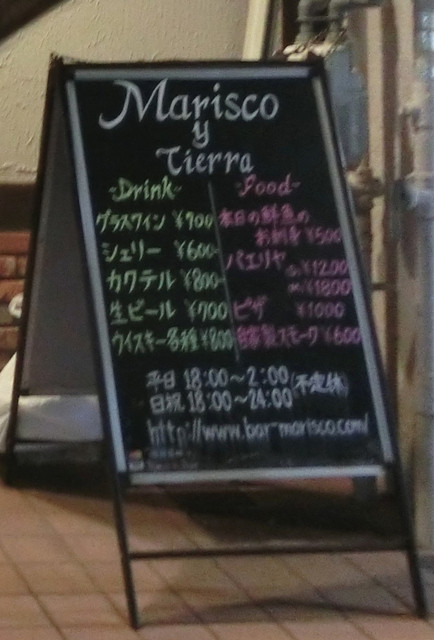 Marisco
y
Tierra
-Drink-
グラスワイン ¥700
シェリー ¥600-
カクテル ¥800-
生ビール ¥700
ウイスキー各種 ¥800
-Food-
本日の鮮魚の
お刺身 ¥500
パエリヤ S ¥1200
M ¥1800
ピザ ¥1000
自家製スモーク ¥600
平日 18:00〜2:00 (不定休)
日祝 18:00〜24:00
http://www.bar-marisco.com/